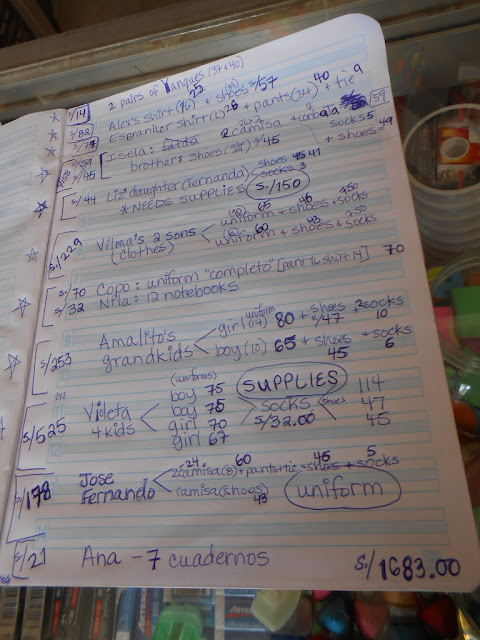 S/14 2 pairs of Yanquees (37 & 40)
S/82 Alex's shirt (16) 25 + shoes (41) S/57
Espranker shirt (L) 28 + pants (34) 40 + tie 9
Isela: falda 2 camisa + corbata S/59
S/45 brother: shoes S/45 socks 5 + shoes 49
S/44 Liz' daughter (Fernanda) shoes 41 socks 3
*NEEDS SUPPLIES S/150
S/229 Vilma's 2 sons (clothes) uniform 65 + shoes 48 + socks 7.50
uniform 60 + shoes 43 + socks 7.50
S/70 Copo: uniform "completo" [pant 16 shirt 14] 70
S/32 Nila: 12 notebooks
S/253 Amalito's grandkids girl (14) uniform 80 + shoes S/47 + 2 socks 10
boy (10) 65 + shoes 45 + socks 6
(uniforms) SUPPLIES 114
S/525 Violeta 4 kids boy 75
boy 75 socks S/32.00 shoes 47
girl 70 45
girl 67
S/178 Jose Fernando 2 camisa (S) 24 + pants + tie 60 + shoes 46 + socks 5
camisa (shoes) 43 uniform
S/21 Ana - 7 cuadernos
S/1683.00